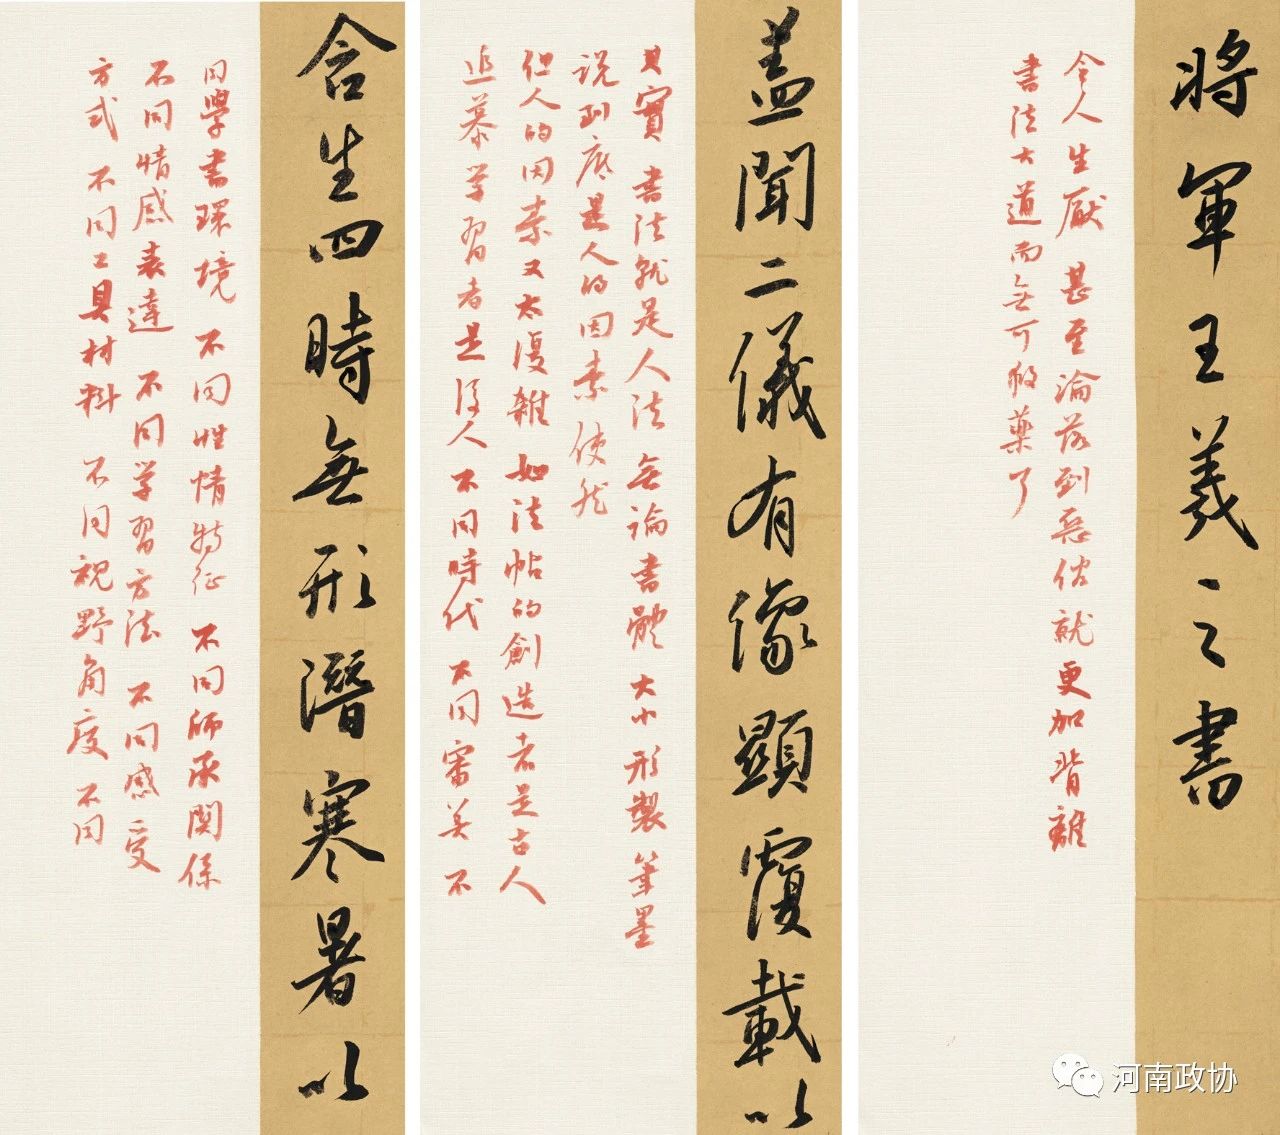 將軍王羲之書
令人生厭 甚至淪落到惡俗就更加背離
書法大道而無可救藥了
蓋聞二儀有像顯覆載以
其實 書法就是人法 無論書體 大小形製 筆墨
说到底是人的因素 使然
但人的因素又太復雜 如法帖的創造者是古人
追慕学習者是後人 不同時代 不同審美 不
含生四時無形潛寒暑以
同學書環境 不同性情特征 不同師承関係
不同情感表達 不同学習方法 不同感受
方式 不同工具材料 不同視野角度 不同
河南政协